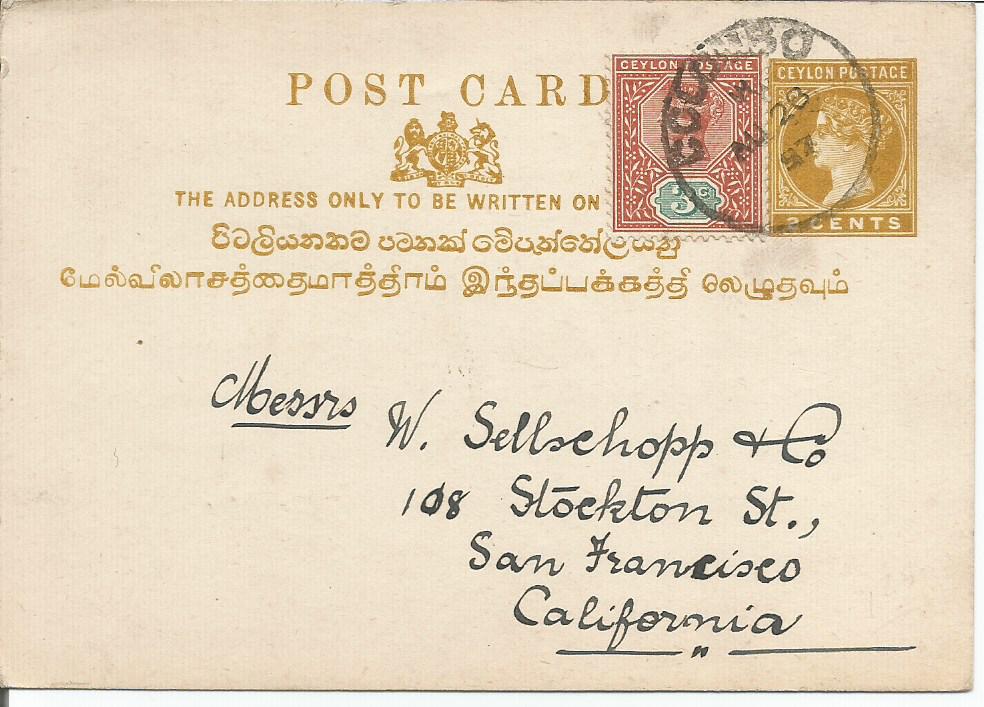 POST CARD
CEYLON POSTAGE
3 C
COLOMBO
AU 28
97
CEYLON POSTAGE
2 CENTS
THE ADDRESS ONLY TO BE WRITTEN ON
පිටලියනතම පටතක්
மேல்விலாசத்தைமாத்திரம் இந்தப்பக்கத்தி லெழுதவும்
Messrs
W. Sellschopp & Co
108 Stockton St.,
San Francisco
California